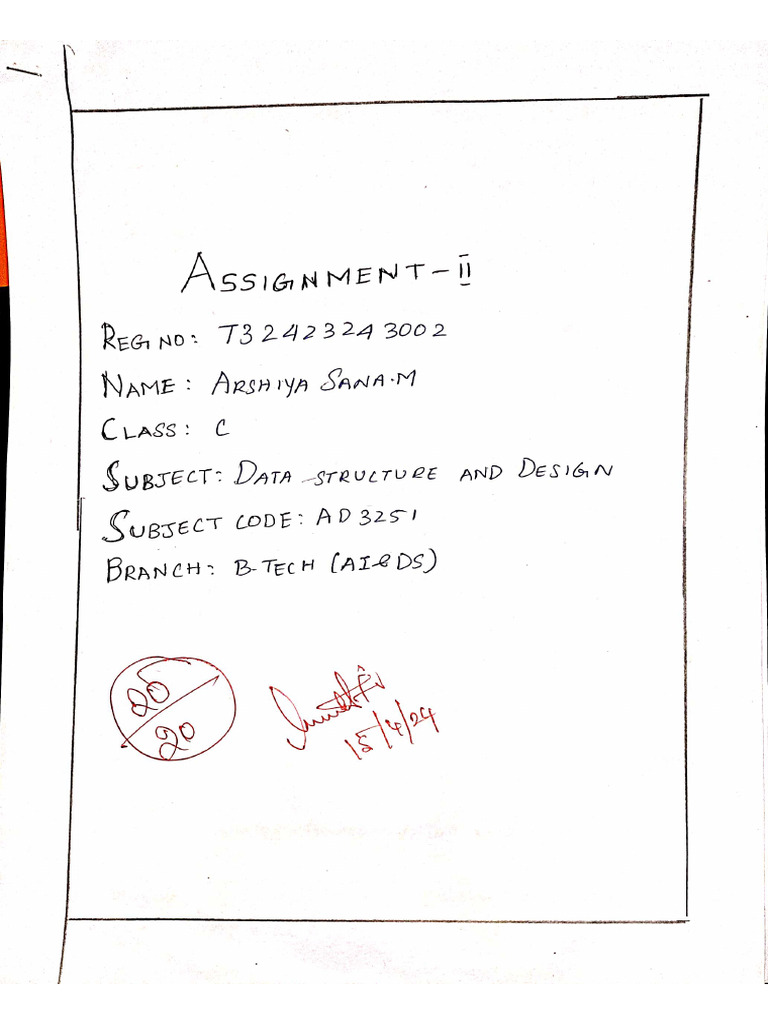 ASSIGNMENT - II
REG NO: T32423243002
NAME: ARSHIYA SANA.M
CLASS: C
SUBJECT: DATA-STRUCTURE AND DESIGN
SUBJECT CODE: AD3251
BRANCH: B-TECH (AI&DS)
20
20
15/4/24